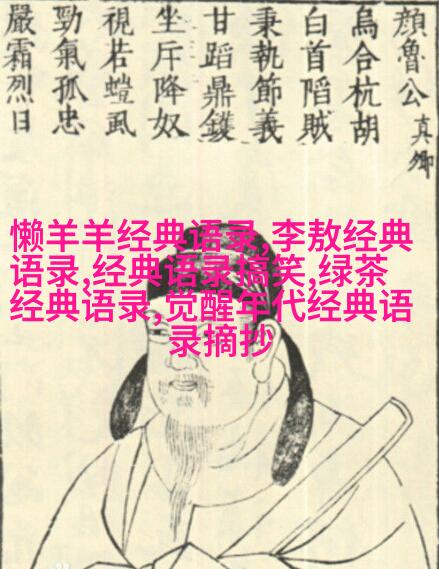 顏魯公真卿
烏合杭胡
白首陷賊
秉執節義
甘蹈鼎鑊
坐斥降奴
視若螘虱
勁氣孤忠
嚴霜烈日
懒羊羊经典语录,李敖经典
语录,经典语录搞笑,绿茶
经典语录,觉醒年代经典语
录摘抄